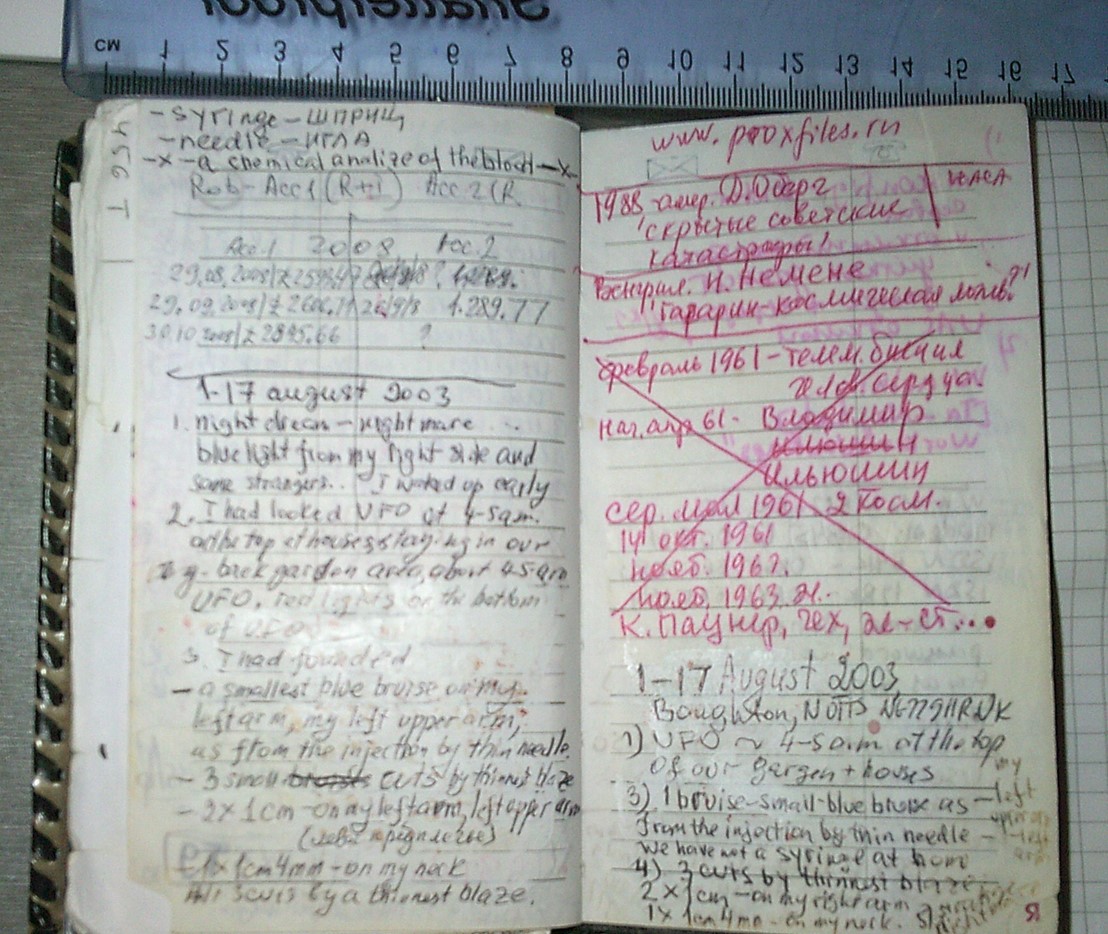 см 1 2 3 4 5 6 7 8 9 10 11 12 13 14 15 16 17
- syringe - шприц
- needle - игла
-x- a chemical analize of the blood -x-
Rob- Acc 1 (R+I) Acc. 2 (R
Acc. 1 2008 Acc. 2
29.08.2008 £ ?
29.09.2008 £ 2606.71 26/9/8 1.289.77
30.10 2008 £ 2895.66 ?
1-17 august 2003
1. night dream - nightmare
blue light from my right side and
some strangers.. I waked up early
2. I had looked UFO at 4-5 a.m.
at the top of houses staying in our
back garden area, about 4-5 a.m
UFO, red lights on the bottom
of UFO
3. I had founded
- a smallest blue bruise on my
left arm, my left upper arm,
as from the injection by thin needle
- 3 small cuts by thinnest blaze
- 2 x 1cm - on my left arm, left upper arm
1x 1cm 4mm - on my neck
All 3 cuts by a thinnest blaze.
www.proxfiles.ru
1988 амер. Д. Оберг НАСА
"скрытые советские
катастрофы"
Венгрия. И. Немене
"Гагарин-космическая ложь?"
февраль 1961 - телем. биения
челов. сердца
нач. апр 61 - Владимир
Ильюшин
сер. мая 1961 2 косм.
14 окт. 1961
нояб. 1962.
нояб. 1963 ж.
1-17 August 2003
Boughton, Notts NG22 9HR UK
1) UFO ~ 4-5 a.m at the top
of our garden + houses
3) 1 bruise-small-blue bruise as - my left
from the injection by thin needle -
We have not a syringe at home
4) 3 cuts by thinnest blaze:
2 x 1cm - on my right arm
1x 1cm 4mm - on my neck.
Я